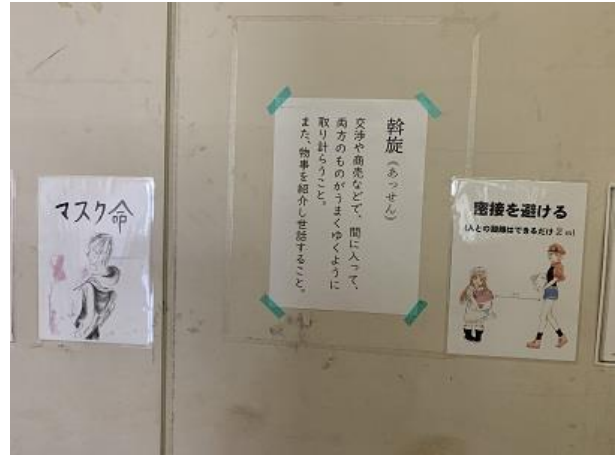 マスク命
斡旋（あっせん）
交渉や商売などで、間に入って、
両方のものがうまくゆくように
取り計らうこと。
また、物事を紹介し世話すること。
密接を避ける
(人との距離はできるだけ2m)